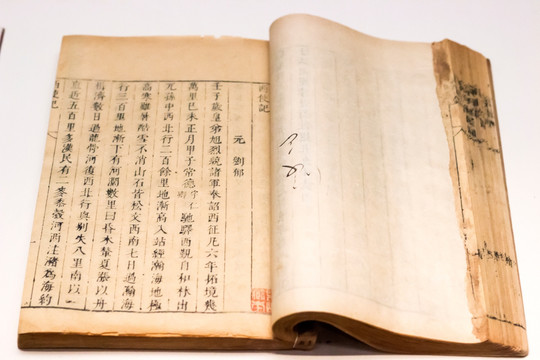 西使記
元 劉郁
壬子歲皇弟旭烈統諸軍奉詔西征凡六年拓境幾
萬里己未正月甲子常德馳驛西覲自和林出
兀孫中西北行二百餘里地漸高入站經瀚海地極
高寒雖暑酷雪不消山石皆松文西南七日過瀚海
行三百里地漸下有河濶數里曰昏木輦夏漲以舟
楫濟數日過龍骨河復西北行與别失八里南以
直近五百里多漢民有二麥黍穀河西注瀦為海約
西使記